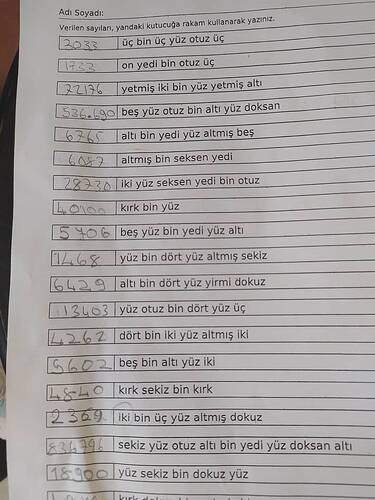 Adı Soyadı:
Verilen sayıları, yandaki kutucuğa rakam kullanarak yazınız.
3033 üç bin üç yüz otuz üç
1733 on yedi bin otuz üç
72176 yetmiş iki bin yüz yetmiş altı
536.690 beş yüz otuz bin altı yüz doksan
6765 altı bin yedi yüz altmış beş
6087 altmış bin seksen yedi
28730 iki yüz seksen yedi bin otuz
40100 kırk bin yüz
5706 beş yüz bin yedi yüz altı
1468 yüz bin dört yüz altmış sekiz
6429 altı bin dört yüz yirmi dokuz
113403 yüz otuz bin dört yüz üç
4262 dört bin iki yüz altmış iki
5602 beş bin altı yüz iki
4840 kırk sekiz bin kırk
2369 iki bin üç yüz altmış dokuz
836796 sekiz yüz otuz altı bin yedi yüz doksan altı
18900 yüz sekiz bin dokuz yüz